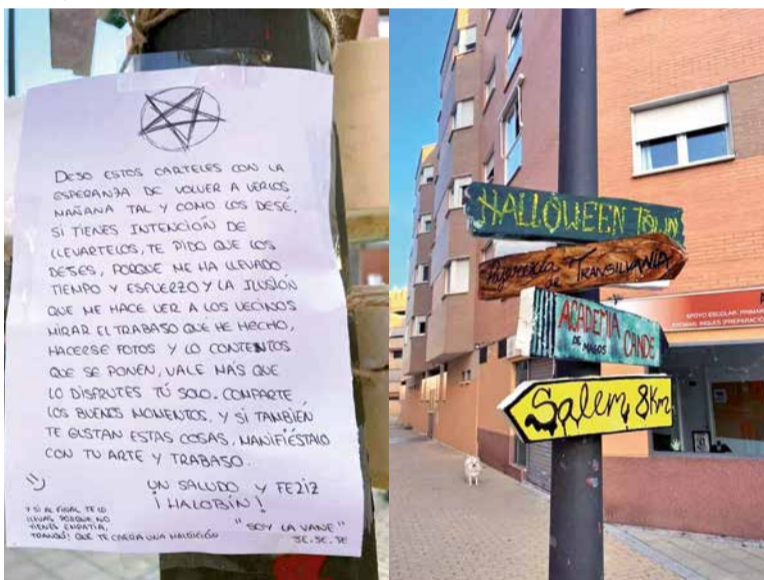 DEJO ESTOS CARTELES CON LA
ESPERANZA DE VOLVER A VERLOS
MAÑANA TAL Y COMO LOS DEJÉ.
SI TIENES INTENCIÓN DE
LLEVARTELOS, TE PIDO QUE LOS
DEJES, PORQUE ME HA LLEVADO
TIEMPO Y ESFUERZO Y LA ILUSIÓN
QUE ME HACE VER A LOS VECINOS
MIRAR EL TRABAJO QUE HE HECHO,
HACERSE FOTOS Y LO CONTENTOS
QUE SE PONEN, VALE MÁS QUE
LO DISFRUTES TÚ SOLO. COMPARTE
LOS BUENOS MOMENTOS. Y SI TAMBIÉN
TE GUSTAN ESTAS COSAS, MANIFIÉSTALO
CON TU ARTE Y TRABAJO.
UN SALUDO Y FELIZ
¡HALOBÍN!
"SOY LA VANE"
JE.JE.JE
Y SI AL FINAL TE LO
LLEVAS PORQUE NO
TIENES EMPATÍA,
TRANQUI! QUE TE CAERÁ UNA MALDICIÓN
HALLOWEEN TOWN
DE TRANSILVANIA
ACADEMIA
DE MAGOS CANDE
Salem, 8Km
APOYO ESCOLAR: PRIMAR
IDIOMAS: INGLÉS (PREPARACIÓ